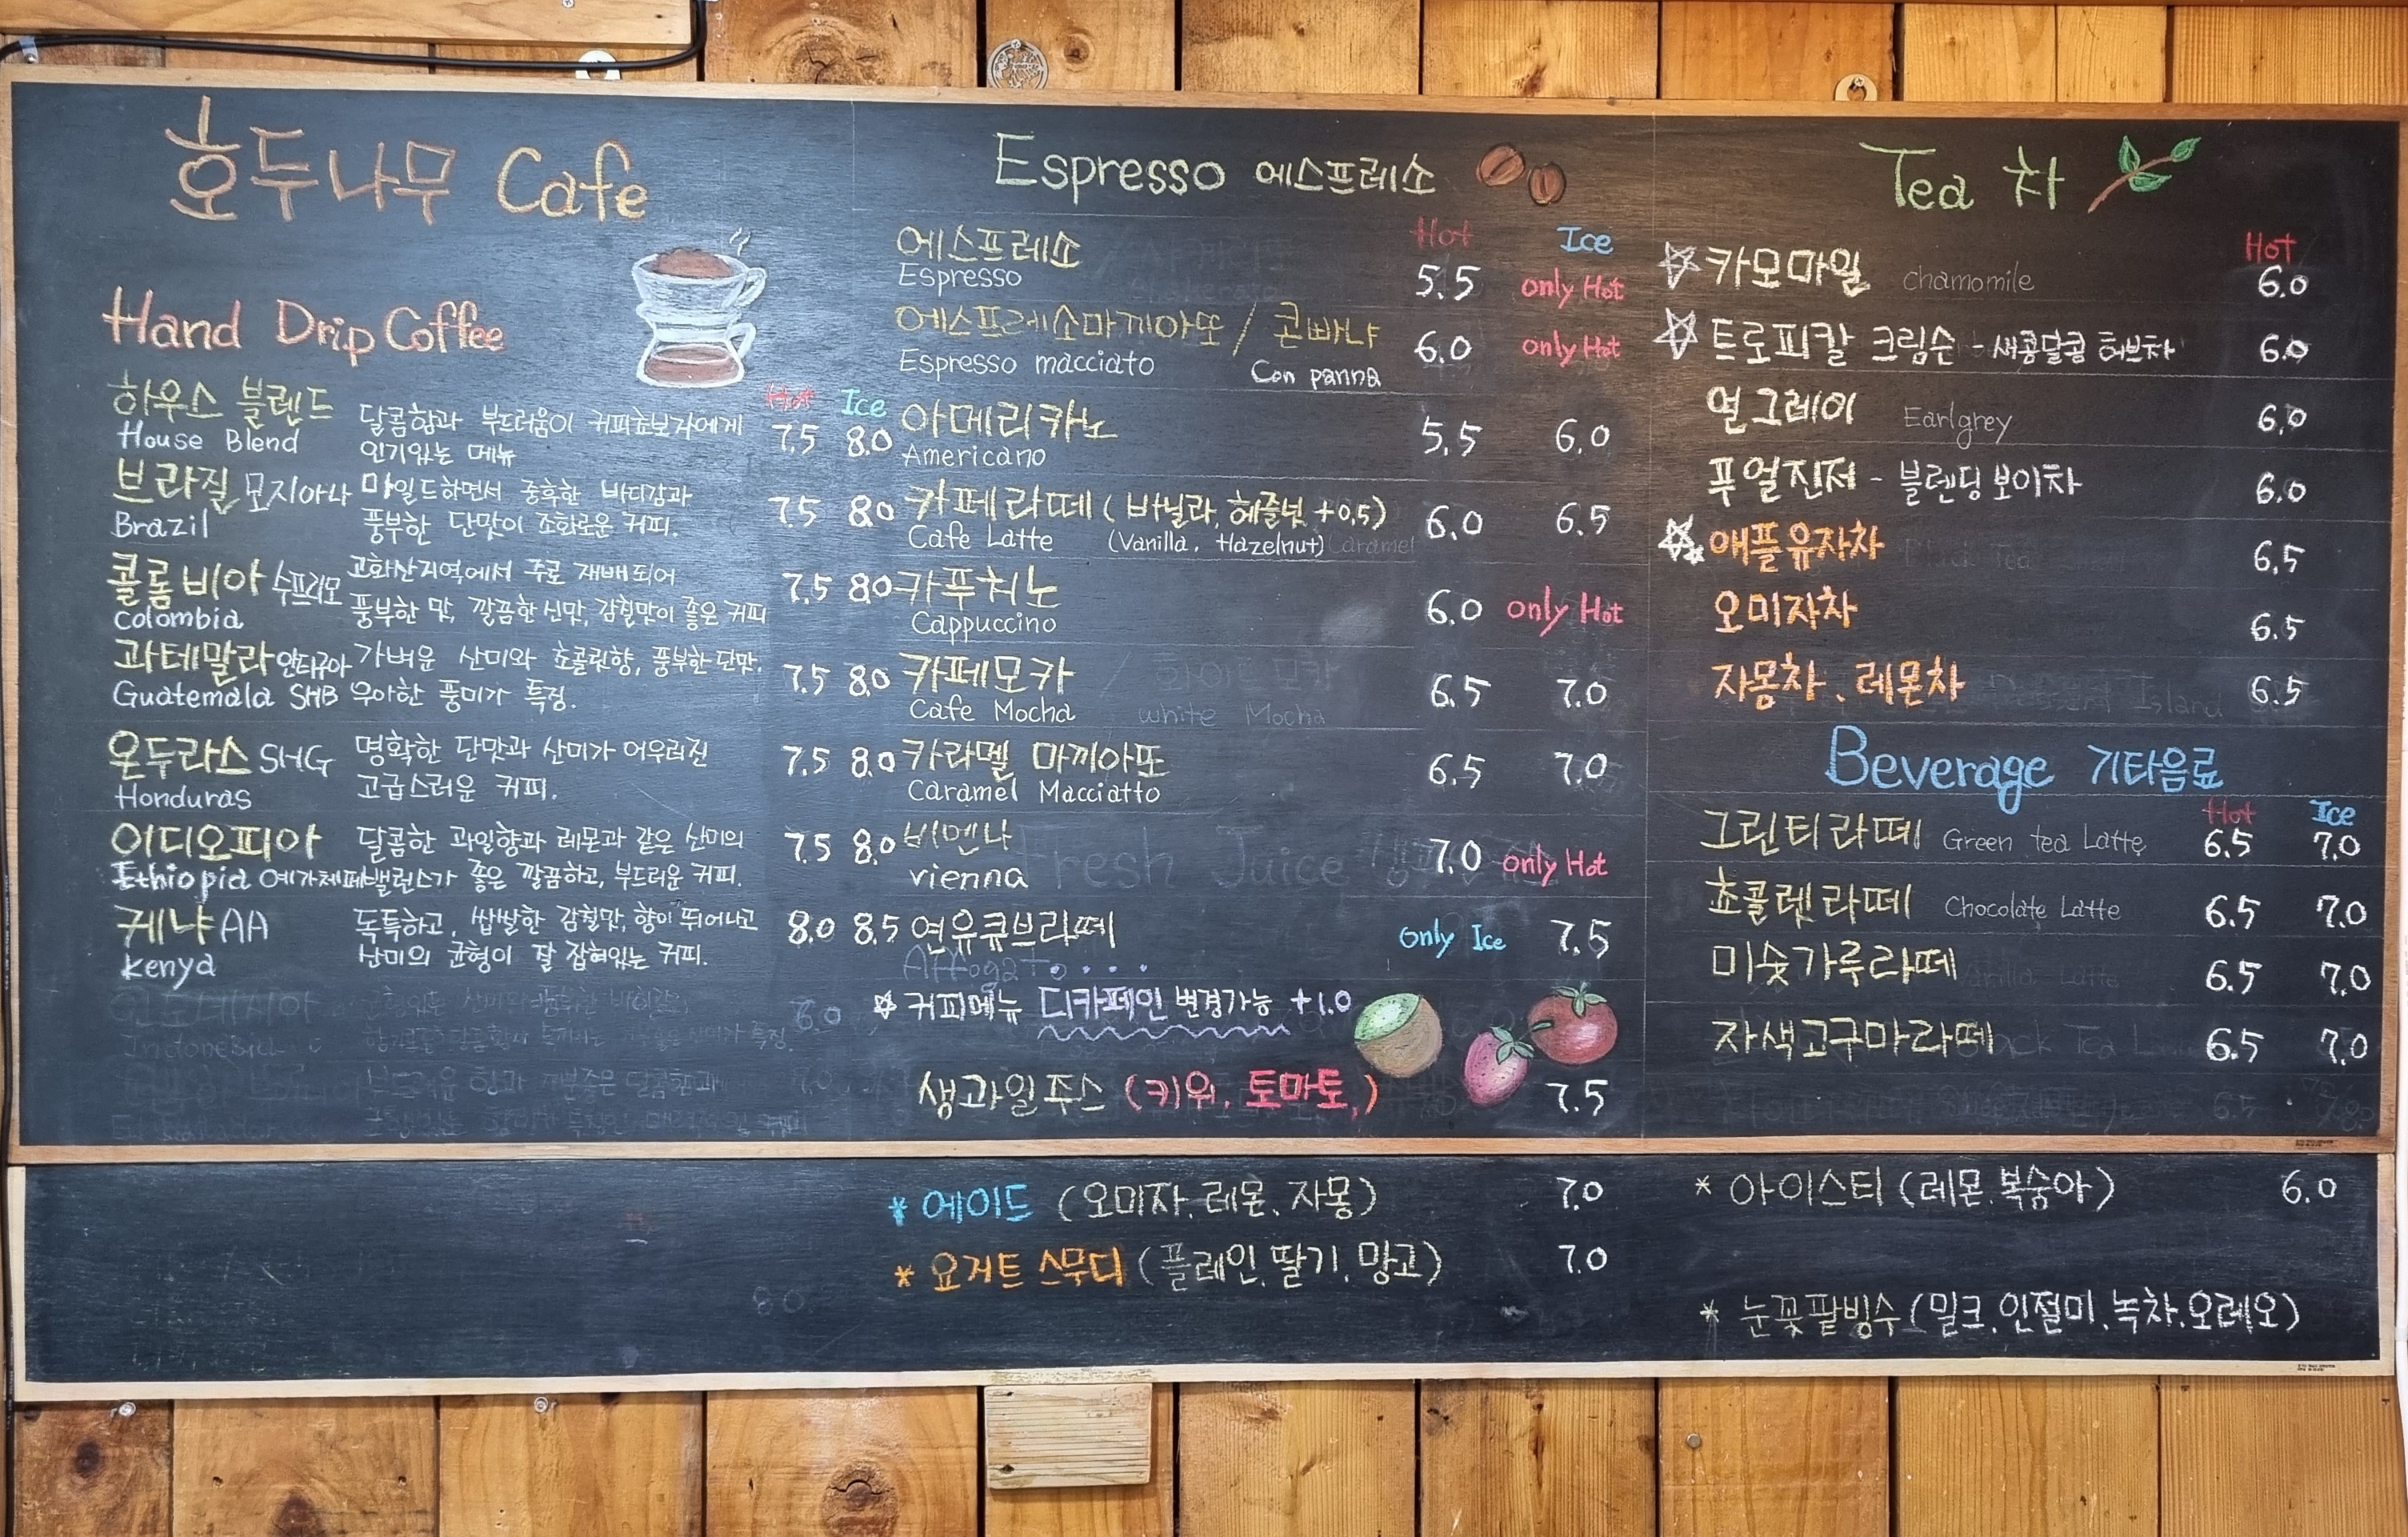 호두나무 Cafe
Hand Drip Coffee
Hot Ice
하우스 블렌드 달콤함과 부드러움이 커피초보자에게 7.5 8.0
House Blend 인기있는 메뉴
브라질 모지아나 마일드하면서 중후한 바디감과 7.5 8.0
Brazil 풍부한 단맛이 조화로운 커피.
콜롬비아 수프리모 고화산지역에서 주로 재배되어 7.5 8.0
Colombia 풍부한 맛, 깔끔한 신맛, 감칠맛이 좋은 커피
과테말라 안티구아 가벼운 산미와 초콜릿향, 풍부한 단맛. 7.5 8.0
Guatemala SHB 우아한 풍미가 특징.
온두라스 SHG 명확한 단맛과 산미가 어우러진 7.5 8.0
Honduras 고급스러운 커피.
이디오피아 달콤한 과일향과 레몬과 같은 산미의 7.5 8.0
Ethiopia 예가체페 밸런스가 좋은 깔끔하고, 부드러운 커피.
케냐 AA 독특하고, 쌉쌀한 감칠맛, 향이 뛰어나고 8.0 8.5
Kenya 산미의 균형이 잘 잡혀있는 커피.
Espresso 에스프레소
Hot Ice
에스프레소
Espresso 5.5 only Hot
에스프레소마끼아또 / 콘빠냐 6.0 only Hot
Espresso macciato Con panna
아메리카노 5.5 6.0
Americano
카페라떼 (바닐라, 헤즐넛 +0.5) 6.0 6.5
Cafe Latte (Vanilla, Hazelnut) Caramel
카푸치노 6.0 only Hot
Cappuccino
카페모카 6.5 7.0
Cafe Mocha white Mocha
카라멜 마끼아또 6.5 7.0
Caramel Macciatto
비엔나 7.0 only Hot
vienna Fresh Juice
연유큐브라떼 Only Ice 7.5
Affogato
☆ 커피메뉴 디카페인 변경가능 +1.0
생과일주스 (키위, 토마토,) 7.5
* 에이드 (오미자. 레몬. 자몽) 7.0
* 요거트 스무디 (플레인. 딸기. 망고) 7.0
Tea 차
Hot
☆ 카모마일 chamomile 6.0
☆ 트로피칼 크림슨 - 새콩달콩 허브차 6.0
얼그레이 Earlgrey 6.0
푸얼진저 - 블렌딩 보이차 6.0
☆ 애플유자차 6.5
오미자차 6.5
자몽차. 레몬차 6.5
Beverage 기타음료
Hot Ice
그린티라떼 Green tea Latte 6.5 7.0
쵸콜렛라떼 Chocolate Latte 6.5 7.0
미숫가루라떼 6.5 7.0
자색고구마라떼 6.5 7.0
* 아이스티 (레몬. 복숭아) 6.0
* 눈꽃팥빙수 (밀크. 인절미. 녹차. 오레오)